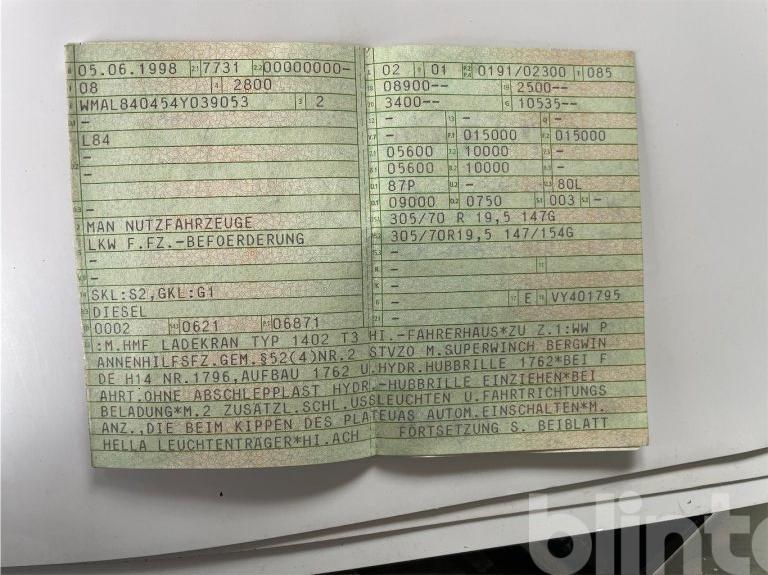 B 05.06.1998 2.1 7731 2.2 00000000-
J 08 4 2800
E WMAL840454Y039053 3 2
-
L84
-
-
-
-
MAN NUTZFAHRZEUGE
LKW F.FZ.-BEFOERDERUNG
-
-
SKL:S2,GKL:G1
DIESEL
0002 0621 06871
L 02 9 01 P.2 P.4 0191/02300 T 085
18 08900-- 19 2500--
20 3400-- G 10535--
12 - 13 - Q -
V.7 - F.1 015000 F.2 015000
7.1 05600 7.2 10000 7.3 -
8.1 05600 8.2 10000 8.3 -
U.1 87P U.2 - U.3 80L
O.1 09000 O.2 0750 S.1 003 S.2 -
15.1 305/70 R 19,5 147G
15.2 305/70R19,5 147/154G
-
R - 11
K -
6 - 17 E 16 VY401795
21 -
:M.HMF LADEKRAN TYP 1402 T3 HI.-FAHRERHAUS*ZU Z.1:WW P
ANNENHILFSFZ.GEM.§52(4)NR.2 STVZO M.SUPERWINCH BERGWIN
DE H14 NR.1796,AUFBAU 1762 U.HYDR.HUBBRILLE 1762*BEI F
AHRT.OHNE ABSCHLEPPLAST HYDR.-HUBBRILLE EINZIEHEN*BEI
BELADUNG*M.2 ZUSÄTZL.SCHL.USSLEUCHTEN U.FAHRTRICHTUNGS
ANZ.,DIE BEIM KIPPEN DES PLATEUAS AUTOM.EINSCHALTEN*M.
HELLA LEUCHTENTRÄGER*HI.ACH FORTSETZUNG S. BEIBLATT